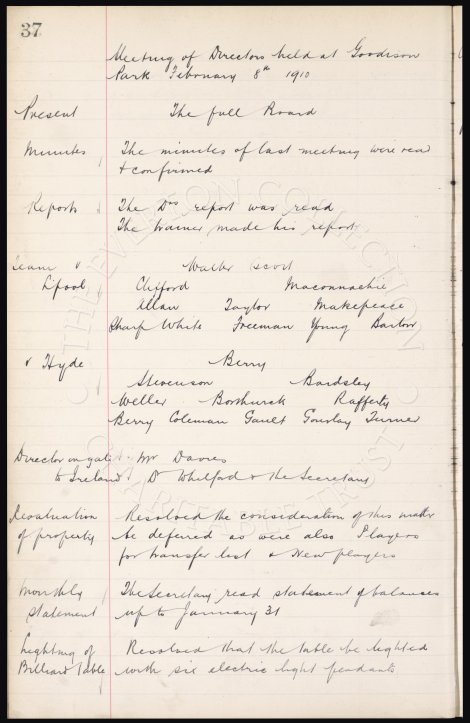 37
Meeting of Directors held at Goodison
Park February 8th 1910
Present The full Board
Minutes The minutes of last meeting were read
& confirmed
Reports The Drs report was read
The trainer made his report
Team v Walter Scott
Lpool Clifford Maconnachie
Allan Taylor Makepeace
Sharp White Freeman Young Barlow
v Hyde Berry
Stevenson Bardsley
Weller Borthwick Rafferty
Berry Coleman Gault Gourlay Turner
Director on gate Mr Davies
to Ireland D Whitford & the Secretary
Revaluation Resolved the consideration of this matter
of property be deferred as were also Players
for transfer list & New players
Monthly The Secretary read statement of balances
statement up to January 31
Lighting of Resolved that the table be lighted
Billiard Table with six electric light pendants
THE EVERTON COLLECTION
CHARITABLE TRUST